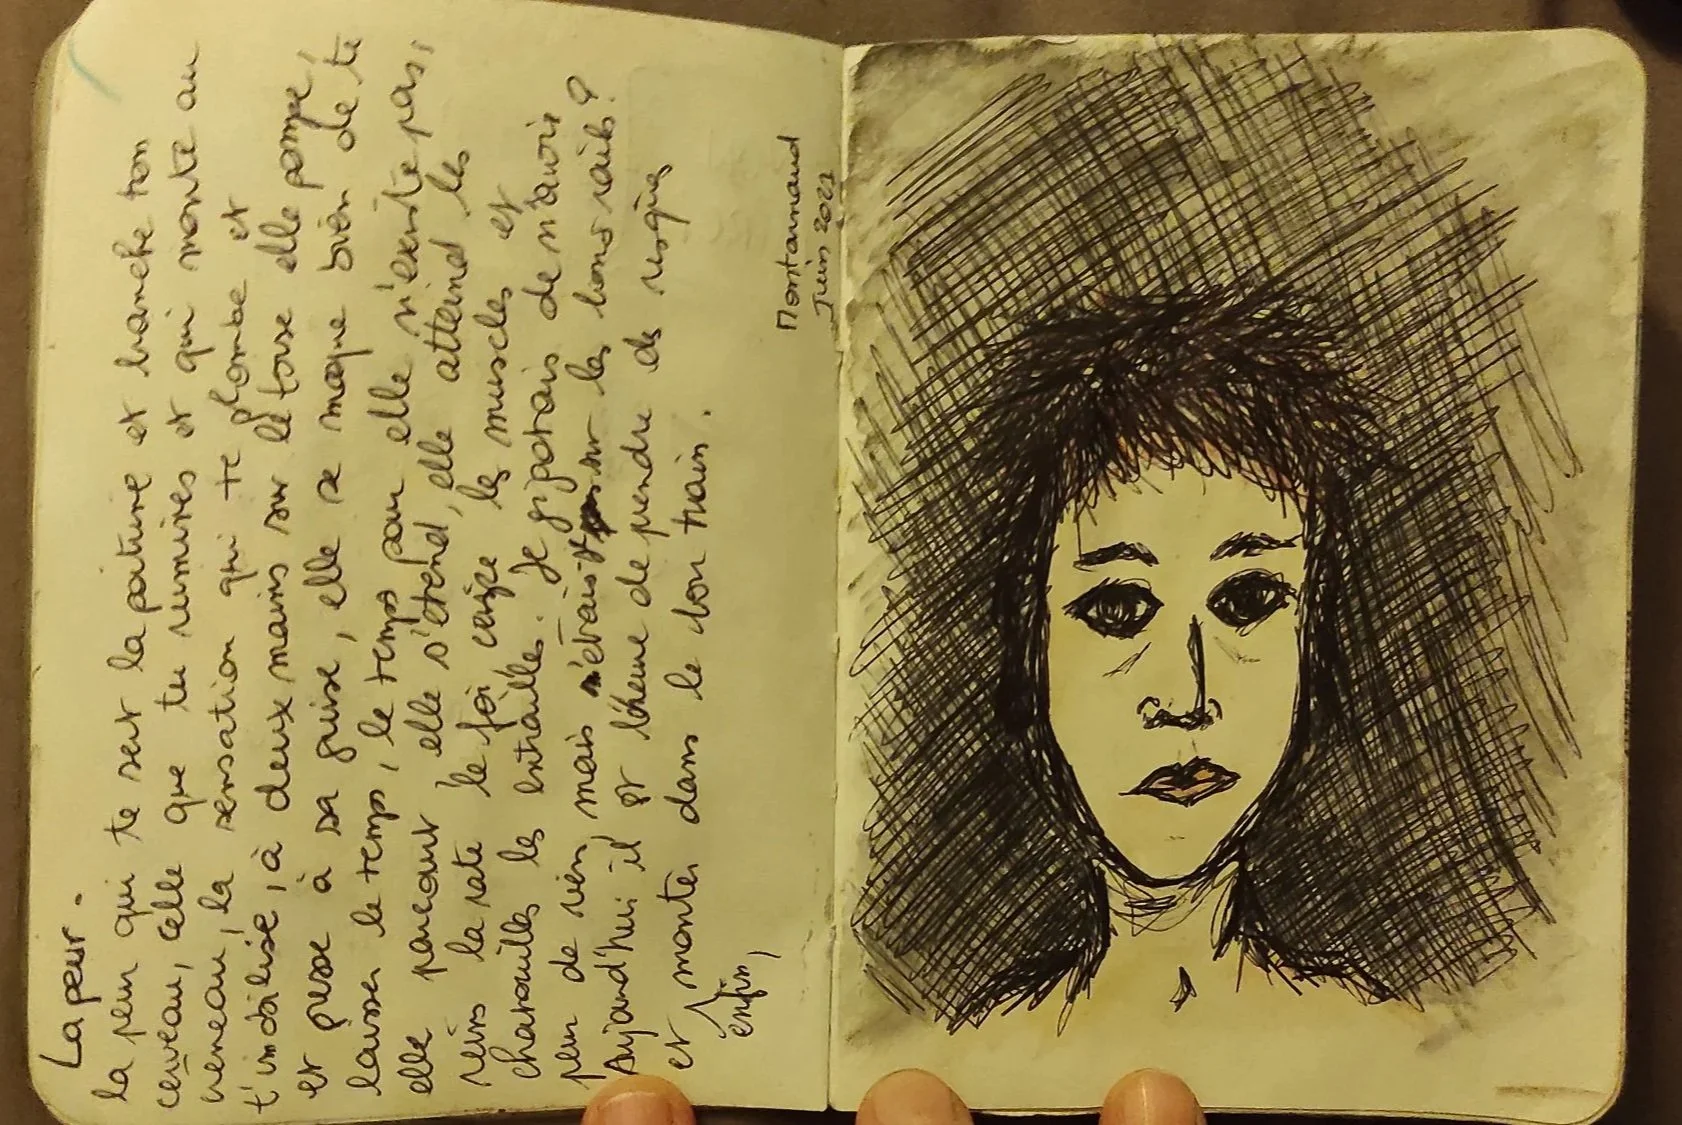 La peur.
la peur qui te sert la poitrine et branche ton
cerveau, celle que tu rumines et qui monte au
cerveau, la sensation qui te plombe et
t'imbalise, à deux mains sur le torse elle pompe,
et puse à sa guise, elle se moque bien de te
laisser le temps, le temps pour elle n'existe pas,
elle parcourt, elle s'étend, elle atteind les
reins la rate le foi crispe les muscles et
chatouille les entrailles. Je préfèrais de n'avoir
peur de rien, mais n'étrais sur les bons rails?
Aujourd'hui il est l'heure de prendre des risques
et monter dans le bon train.
enfin,
Montarnaud
Juin 2021